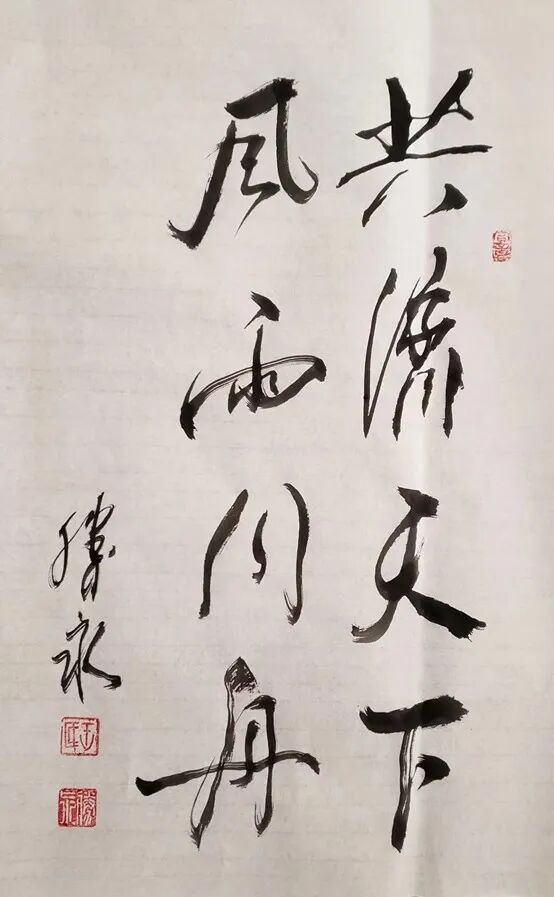 共济天下
风雨同舟
勝永